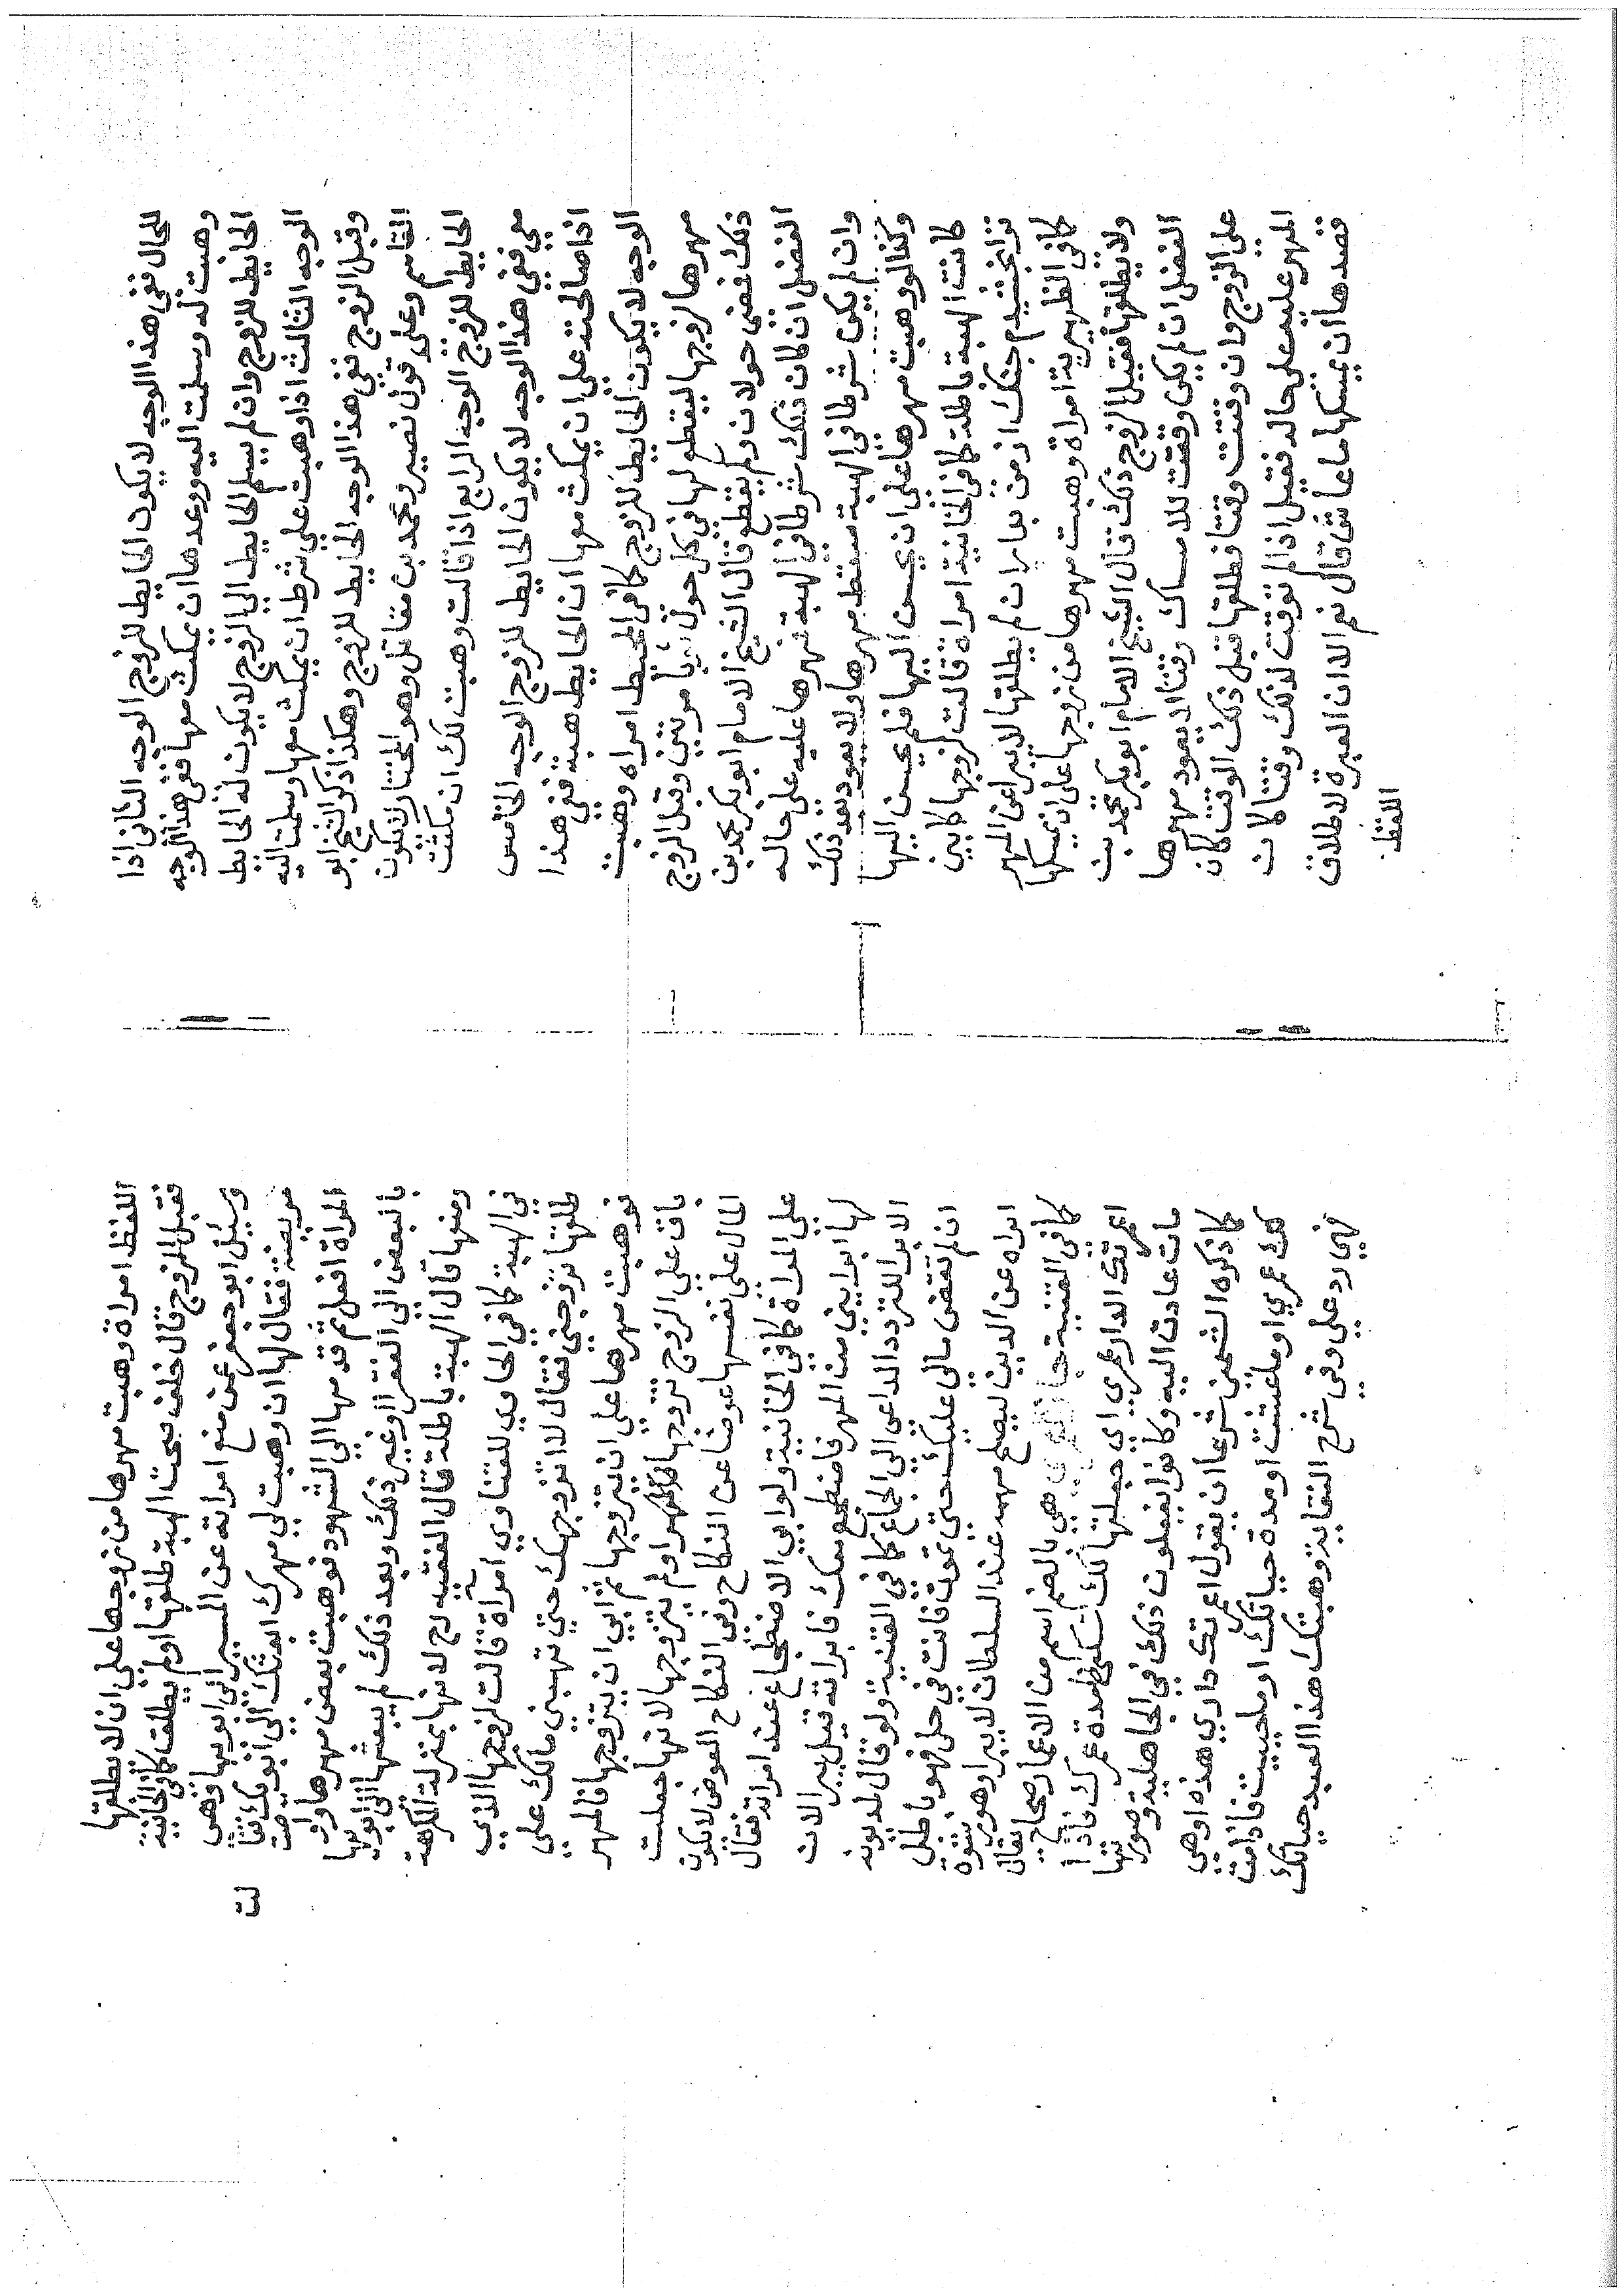 للحال ففي هذا الوجه لا يكون الحايط للزوج الوجه الثاني اذا
وهبت له وسلمت اليه ووعدها ان يمكث معها ففي هذا الوجه
الحايط للزوج وان لم يسلم الحايط الي الزوج لا يكون له الحايط
الوجه الثالث اذا وهبت علي شرط ان يمكث معها وسلمت اليه
وقبل الزوج ففي هذا الوجه الحايط للزوج وهكذا ذكر الشيخ ابو
القاسم وعلي قول نصير ومحمد بن مقاتل وهو المختار لا يكون
الحايط للزوج الوجه الرابع اذا قالت وهبت لك ان مكثت
معي ففي هذا الوجه لا يكون الحايط للزوج الوجه الخامس
اذا صالحته علي ان يمكث معها ان الحايط هبة ففي هذا
الوجه لا يكون الحايط للزوج كما في المحيط امراه وهبت
مهرها لزوجها ليقطع لها في كل حول ثوبا مرتين وقبل الزوج
ذلك فمضي حولان ولم يقطع قال الشيخ الامام ابو بكر محمد بن
الفضل ان كان ذلك شرطا في الهبة فمهرها عليه علي حاله
وان لم يكن شرطا في الهبة سقط مهرها ولا يعود بعد ذلك
وكذا لو وهبت مهرها علي ان يحسن اليها فلم يحسن اليها
كانت الهبة باطلة كما في الخانية امراة قالت لزوجها كابين
ترا بخشيدم جنك از من بدار ان لم يطلقها لا يبرا عن المهر
كما في الظهيرية امراة وهبت مهرها من زوجها علي ان يمسكها
ولا يطلقها فقبل الزوج ذلك قال الشيخ الامام ابو بكر محمد بن
الفضل ان لم يكن وقتت للامساك وقتا لا يعود مهرها
علي الزوج وان وقتت وقتا فطلقها قبل ذلك الوقت كان
المهر عليه علي حاله فقيل اذا لم توقت لذلك وقتا كان
قصدها ان يمسكها ما عاش قال نعم الا ان العبرة لاطلاق
اللفظ
اللفظ امراة وهبت مهرها من زوجها علي ان لا يطلقها
فقبل الزوج قال خلف صحت الهبة طلقها او لم يطلق كما في الخانية
وسئل ابو جعفر عمن منع امراته عن المسير الي ابويها وهي
مريضة فقال لها ان وهبت لي مهرك ابعثك الي ابويك فقالت
المراة افعل ثم قدمها الي الشهود فوهبت بعض مهرها واوصت
بالبعض الي الفقرا او غير ذلك وبعد ذلك لم يبعثها الي ابويها
ومنعها قال الهبة باطلة قال الفقيه رح لانها بمنزلة المكرهة
في الهبة كما في الحاوي للفتاوي امراة قالت لزوجها الذي
طلقها تزوجني فقال لا اتزوجك حتي تهبيني مالك علي
فوهبت مهرها علي ان يتزوجها ثم ابي ان يتزوجها فالمهر
باق علي الزوج تزوجها او لم يتزوجها لانها جعلت
المال علي نفسها عوضا عن النكاح وفي النكاح العوض لا يكون
علي المراة كما في الخانية ولو ابي الاضطجاع عند امراته فقال
لها ابرايني من المهر فاضطجع معك فابراته قيل يبرا لان
الابرا للتودد الداعي الي الجماع كما في القنية ولو قال لمديونه
ان لم تقض مالي عليك حتي تموت فانت في حل فهو باطل
ابراه عن الدين ليصلح مهمه عند السلطان لا يبرا وهو رشوة
كما في القنية هي بالضم اسم من الاعمار صحاح يقال
اعمرتك الدار عمري اي جعلتها لك تسكنها مدة عمرك فاذا
مات عادت اليه وكانوا يفعلون ذلك في الجاهلية وصورتها
كما ذكره الشمني شرعا ان يقول اعمرتك داري هذه او هي
لك عمري او ما عشت او مدة حياتك او ما حييت فاذا مت
فهي رد علي وفي شرح النقاية وهبتك هذا العبد حياتك